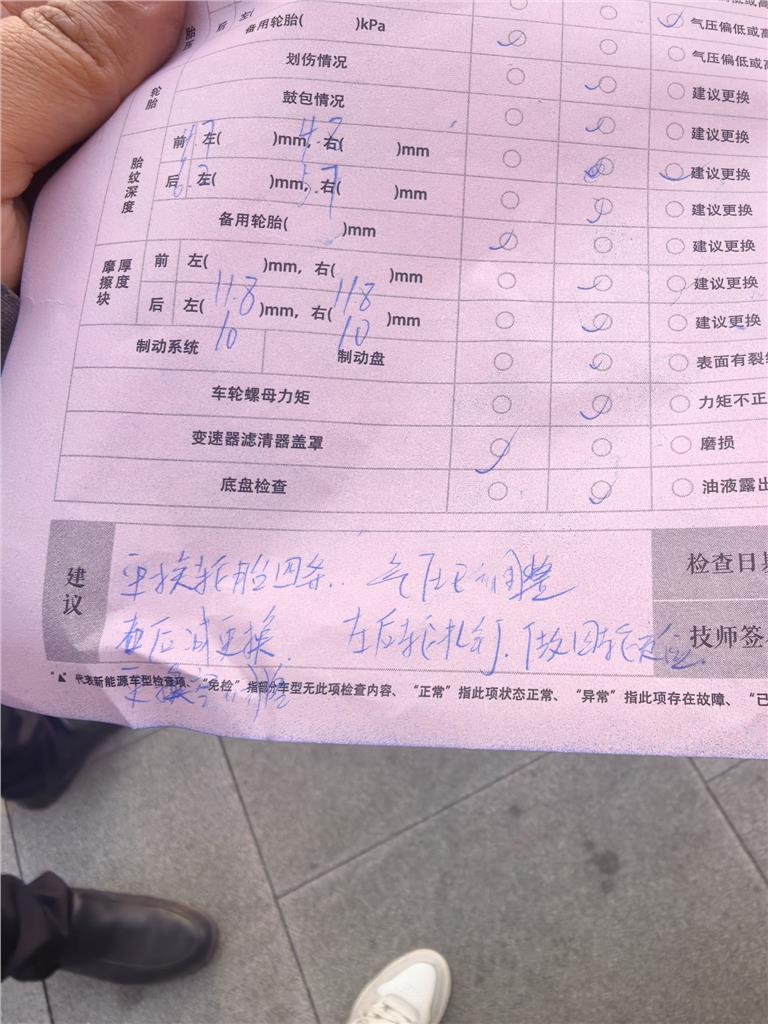 备用轮胎( )kPa 气压偏低或高
轮胎 划伤情况 气压偏低或高
鼓包情况 建议更换
建议更换
胎纹深度 前 左( 4.7 )mm, 右( 4.7 )mm 建议更换
后 左( )mm, 右( 5.7 )mm 建议更换
备用轮胎( )mm 建议更换
摩擦块厚度 前 左( 11.8 )mm, 右( 11.8 )mm 建议更换
后 左( 10 )mm, 右( 10 )mm 建议更换
制动系统 制动盘 表面有裂
车轮螺母力矩 力矩不正
变速器滤清器盖罩 磨损
底盘检查 油液露出
建议 更换轮胎四条. 气压已调整 检查日期
左后轮扎钉. 做四轮定位. 技师签
"代表新能源车型检查项、"免检"指部分车型无此项检查内容、"正常"指此项状态正常、"异常"指此项存在故障、"已
更换